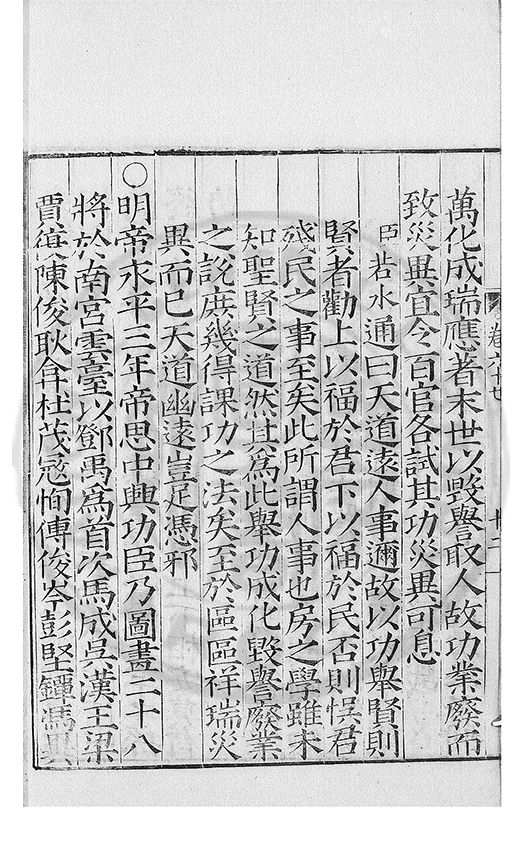 萬化成瑞應著末世以毀譽取人故功業廢而
致災異宜令百官各試其功災異可息
臣若水通曰天道遠人事邇故以功舉賢則
賢者勸上以福於君下以福於民否則悞君
殘民之事至矣此所謂人事也房之學雖未
知聖賢之道然其為此舉功成化毀譽廢業
之說庶幾得課功之法矣至於區區祥瑞災
異而已天道幽遠豈足憑邪
○明帝永平三年帝思中興功臣乃圖畫二十八
將於南宮雲臺以鄧禹為首次馬成吳漢王梁
賈復陳俊耿弇杜茂寇恂傅俊岑彭堅鐔馮異
卷六十七
十二